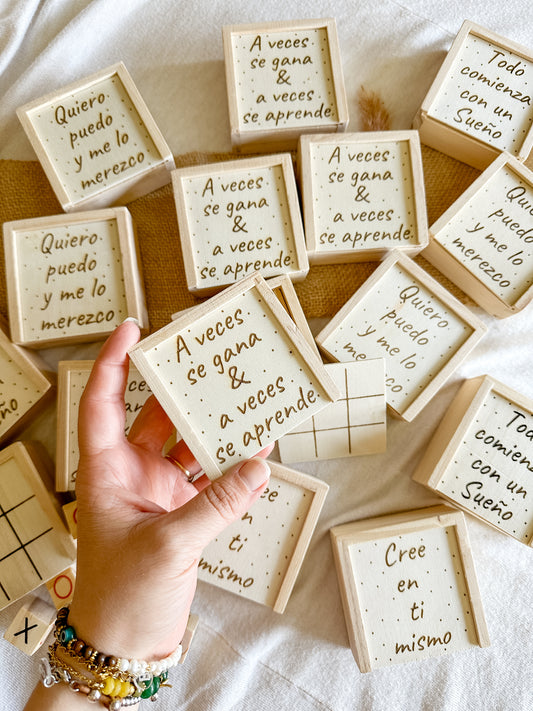 A veces
se gana
&
a veces
se aprende.
Todo
comienza
con un
Sueño
Quiero
puedo
y me lo
merezco
A veces
se gana
&
a veces
se aprende.
A veces
se gana
&
a veces
se aprende.
Quiero
puedo
y me lo
merezco
Quiero
puedo
y me lo
merezco
Quiero
puedo
y me lo
merezco
A veces
se gana
&
a veces
se aprende.
Todo
comienza
con un
Sueño
Sueño
Cree
en
ti
mismo
Cree
en
ti
mismo
O
X